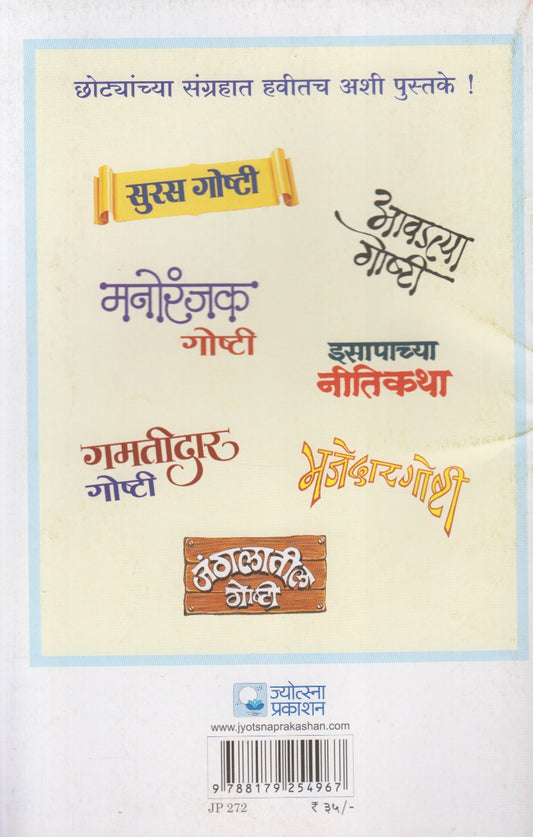 छोट्यांच्या संग्रहात हवीतच अशी पुस्तके !
सुरस गोष्टी
आवडत्या
गोष्टी
मनोरंजक
गोष्टी
इसापाच्या
नीतिकथा
गमतीदार
गोष्टी
मजेदार गोष्टी
जंगलातील
गोष्टी
ज्योत्स्ना
प्रकाशन
www.jyotsnaprakashan.com
9 788179 254967
JP 272
₹ ३५/-